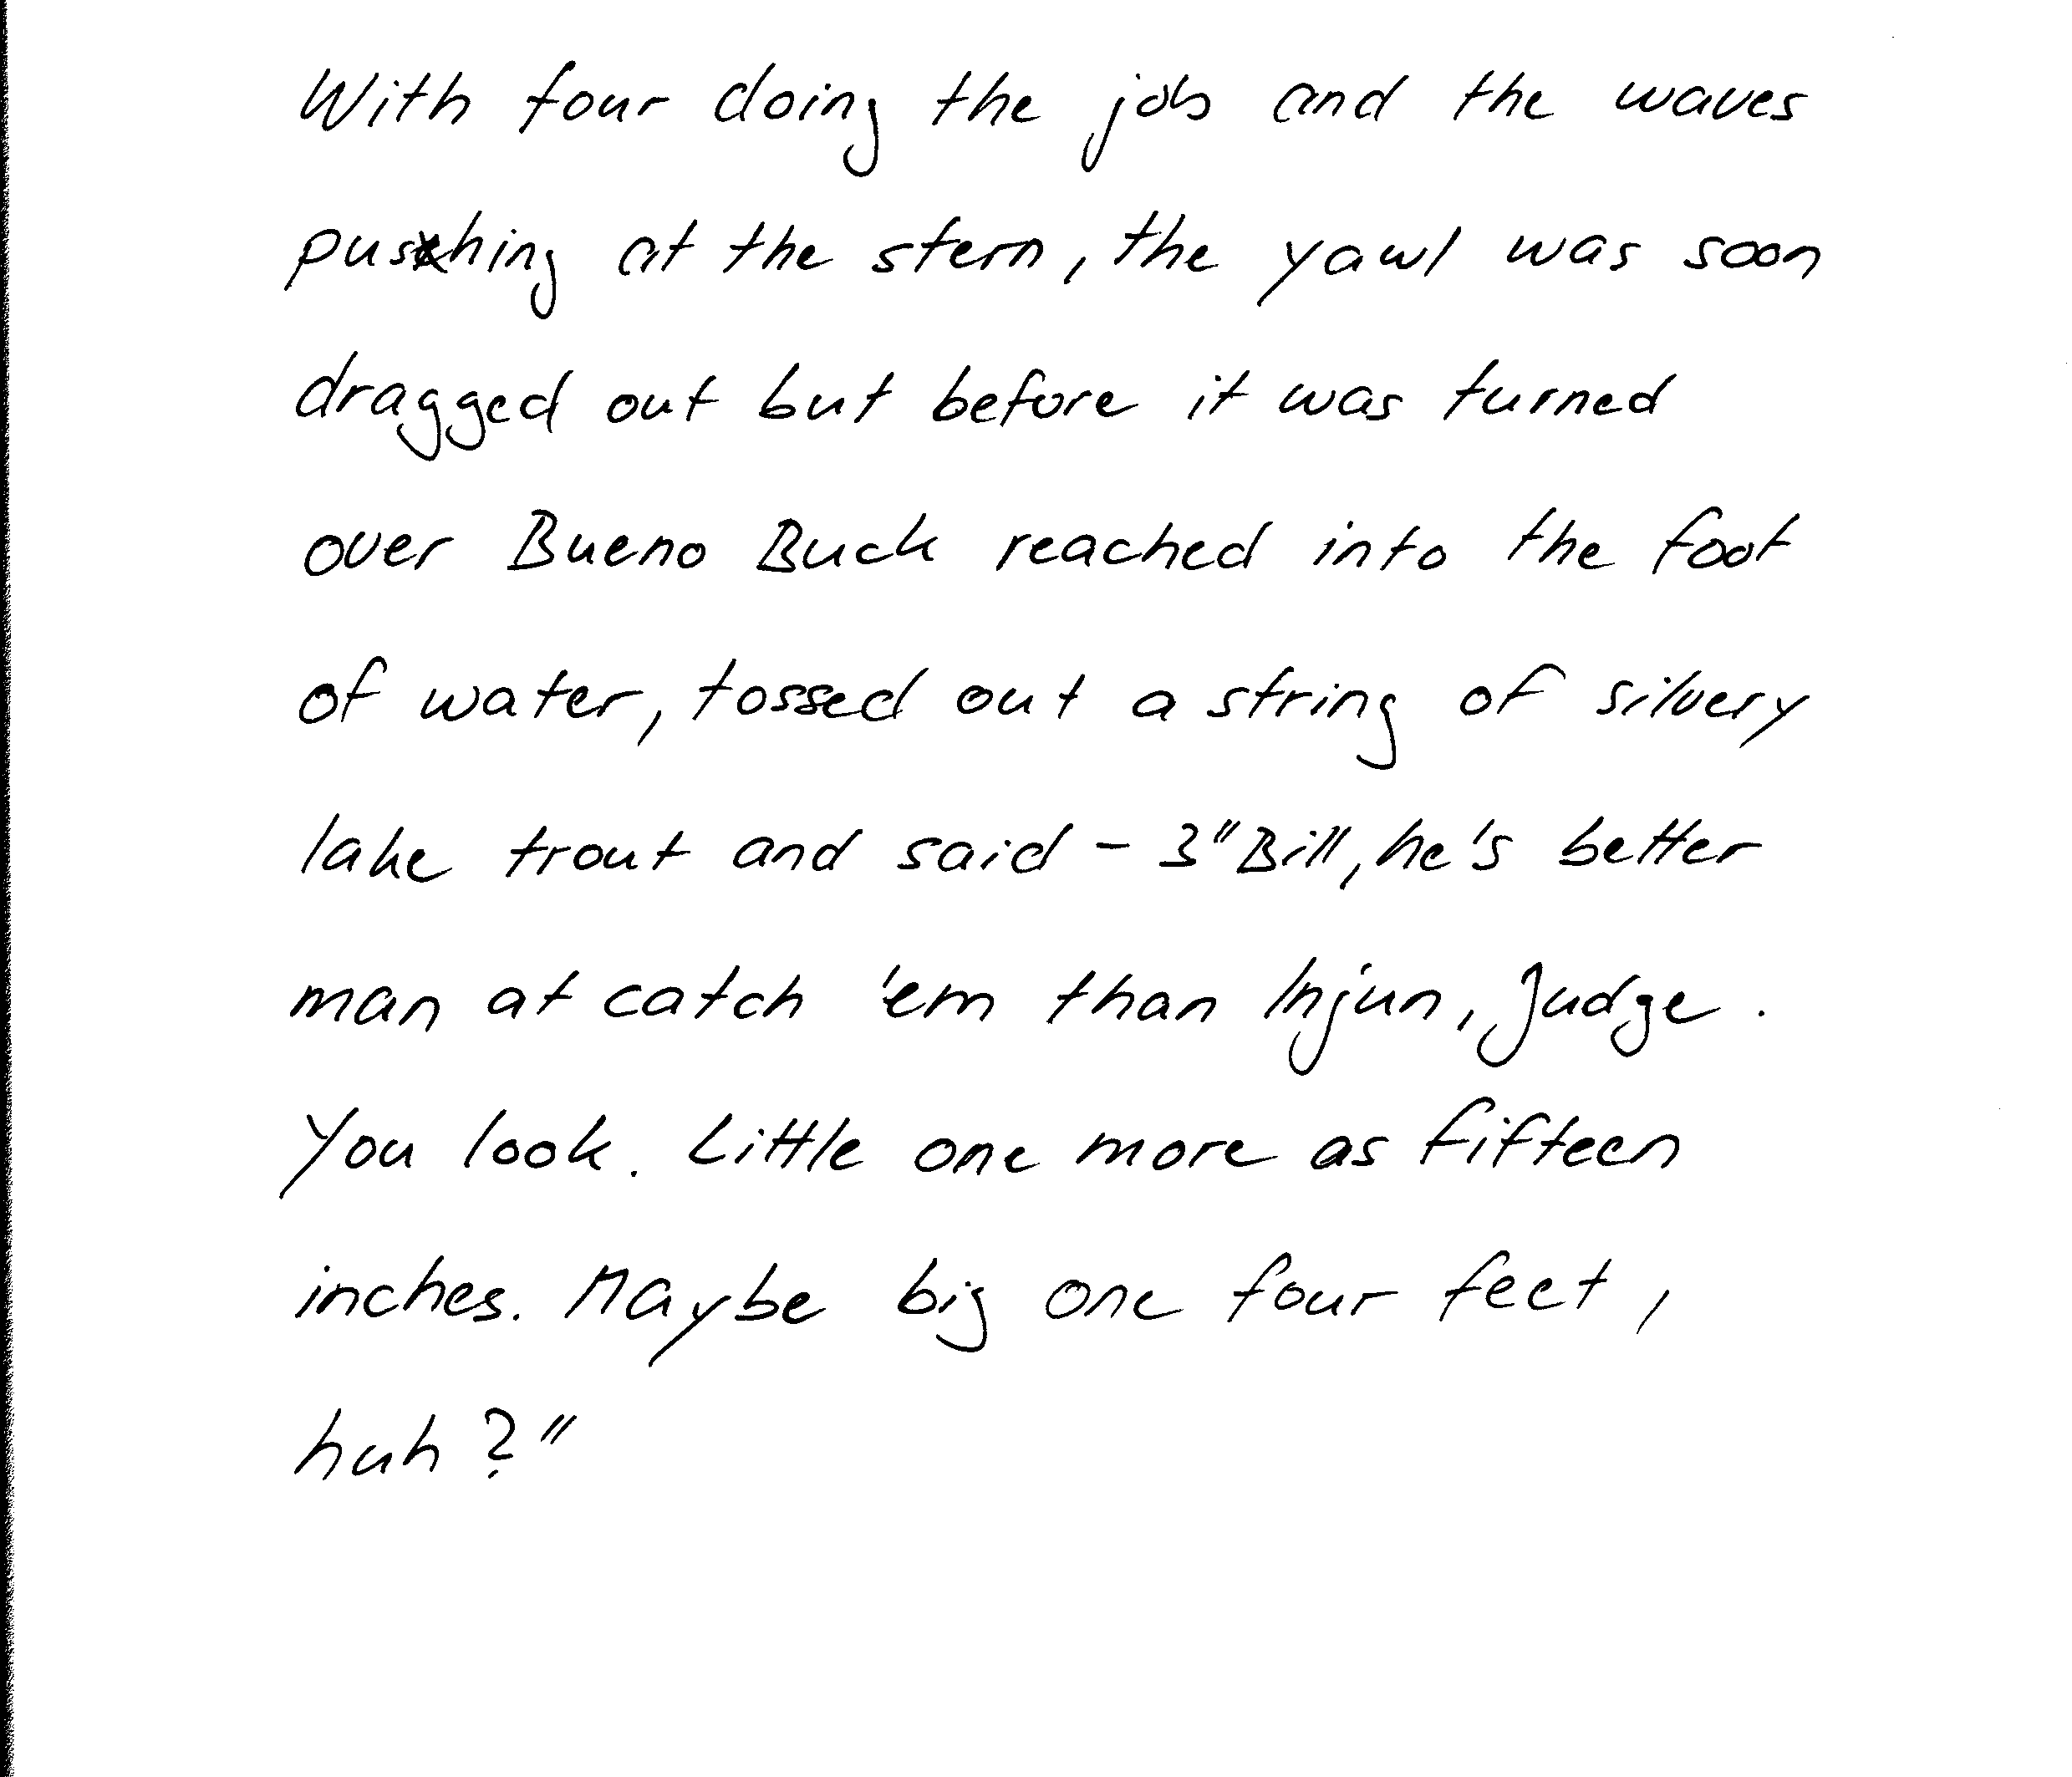 With four doing the job and the waves
pushing at the stern, the yawl was soon
dragged out but before it was turned
over Bueno Buck reached into the foot
of water, tossed out a string of silvery
lake trout and said - 3"Bill, he's better
man at catch 'em than Injun, Judge.
You look. Little one more as fifteen
inches. Maybe big one four feet,
huh?"